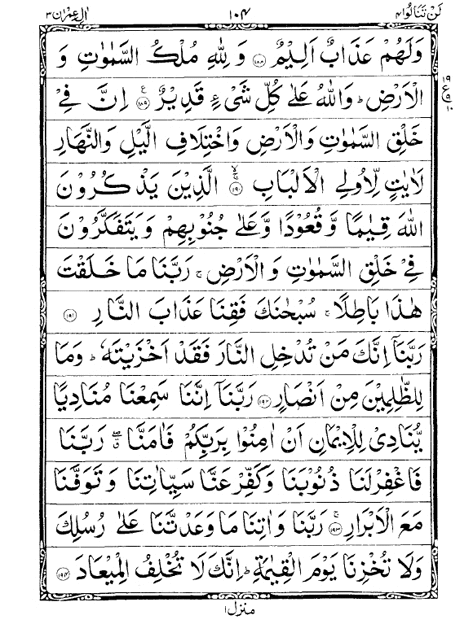 لن تنالوا ٤ ١٠٤ اٰل عمرٰن ٣
وَلَهُمْ عَذَابٌ اَلِيْمٌ ﴿١٨٨﴾ وَ لِلّٰهِ مُلْكُ السَّمٰوٰتِ وَ
الْاَرْضِ ؕ وَاللّٰهُ عَلٰى كُلِّ شَىْءٍ قَدِيْرٌ ﴿١٨٩﴾ اِنَّ فِىْ
خَلْقِ السَّمٰوٰتِ وَالْاَرْضِ وَاخْتِلَافِ الَّيْلِ وَالنَّهَارِ
لَاٰيٰتٍ لِّاُولِى الْاَلْبَابِ ﴿١٩٠﴾ الَّذِيْنَ يَذْكُرُوْنَ
اللّٰهَ قِيٰمًا وَّ قُعُوْدًا وَّعَلٰى جُنُوْبِهِمْ وَيَتَفَكَّرُوْنَ
فِىْ خَلْقِ السَّمٰوٰتِ وَ الْاَرْضِ ۚ رَبَّنَا مَا خَلَقْتَ
هٰذَا بَاطِلًا ۚ سُبْحٰنَكَ فَقِنَا عَذَابَ النَّارِ ﴿١٩١﴾
رَبَّنَاۤ اِنَّكَ مَنْ تُدْخِلِ النَّارَ فَقَدْ اَخْزَيْتَهٗ ؕ وَمَا
لِلظّٰلِمِيْنَ مِنْ اَنْصَارٍ ﴿١٩٢﴾ رَبَّنَاۤ اِنَّنَا سَمِعْنَا مُنَادِيًا
يُّنَادِىْ لِلْاِيْمَانِ اَنْ اٰمِنُوْا بِرَبِّكُمْ فَاٰمَنَّا ۖ رَبَّنَا
فَاغْفِرْ لَنَا ذُنُوْبَنَا وَكَفِّرْ عَنَّا سَيِّاٰتِنَا وَ تَوَفَّنَا
مَعَ الْاَبْرَارِ ﴿١٩٣﴾ رَبَّنَا وَ اٰتِنَا مَا وَعَدْتَّنَا عَلٰى رُسُلِكَ
وَلَا تُخْزِنَا يَوْمَ الْقِيٰمَةِ ؕ اِنَّكَ لَا تُخْلِفُ الْمِيْعَادَ ﴿١٩٤﴾
منزل ١